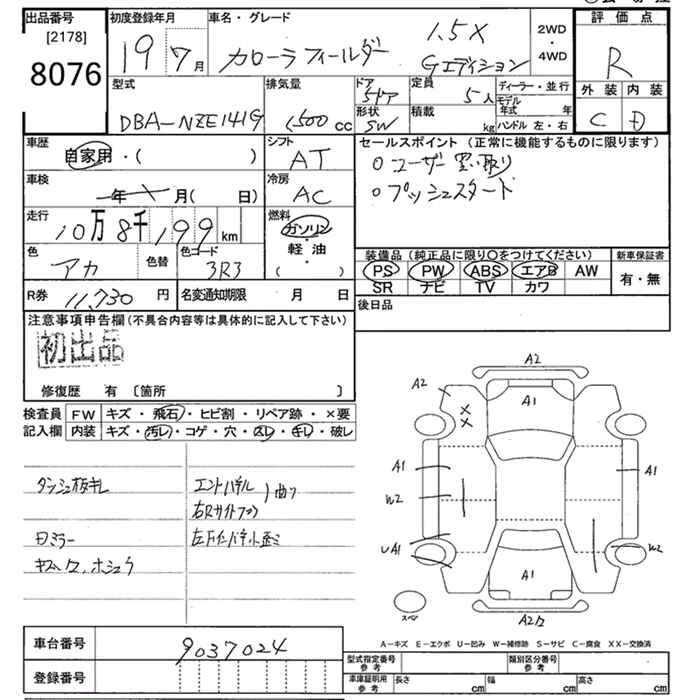 出品番号 [2178] 8076
初度登録年月 19 7月
車名・グレード カローラフィールダー 1.5X Gエディション
2WD・4WD
評価点 R
外装 C 内装 D
型式 DBA-NZE141G
排気量 1500cc
ドア 5ドア
形状 SW
定員 5人
積載 kg
ディーラー・並行
モデル年式 年
ハンドル 左・右
車歴 自家用・( )
シフト AT
セールスポイント (正常に機能するものに限ります)
○ユーザー買取り
○プッシュスタート
車検 年 月(日)
冷房 AC
走行 10万8千199km
燃料 ガソリン・軽油・( )
色 アカ 色替 色コード 3R3
装備品(純正品に限り○をつけてください)
PS PW ABS エアB AW
SR ナビ TV カワ
新車保証書 有・無
R券 11,730円 名変通知期限 月 日
後日品
注意事項申告欄(不具合内容等は具体的に記入して下さい)
初出品
修復歴 有〔箇所 〕
検査員記入欄
FW キズ・飛石・ヒビ割・リペア跡・×要
内装 キズ・汚レ・コゲ・穴・スレ・キレ・破レ
ダッシュ板キレ
エンドパネル
曲り
右Rサイドフロア
左F
ミラー
A2
A2 A1
XX
A1 A1
W2
UA1 W2
A1
スペア A2
A−キズ E−エクボ U−凹み W−補修跡 S−サビ C−腐食 XX−交換済
車台番号 9037024
登録番号
型式指定番号 参考
類別区分番号 参考
車庫証明用 参考 長さ cm 幅 cm 高さ cm